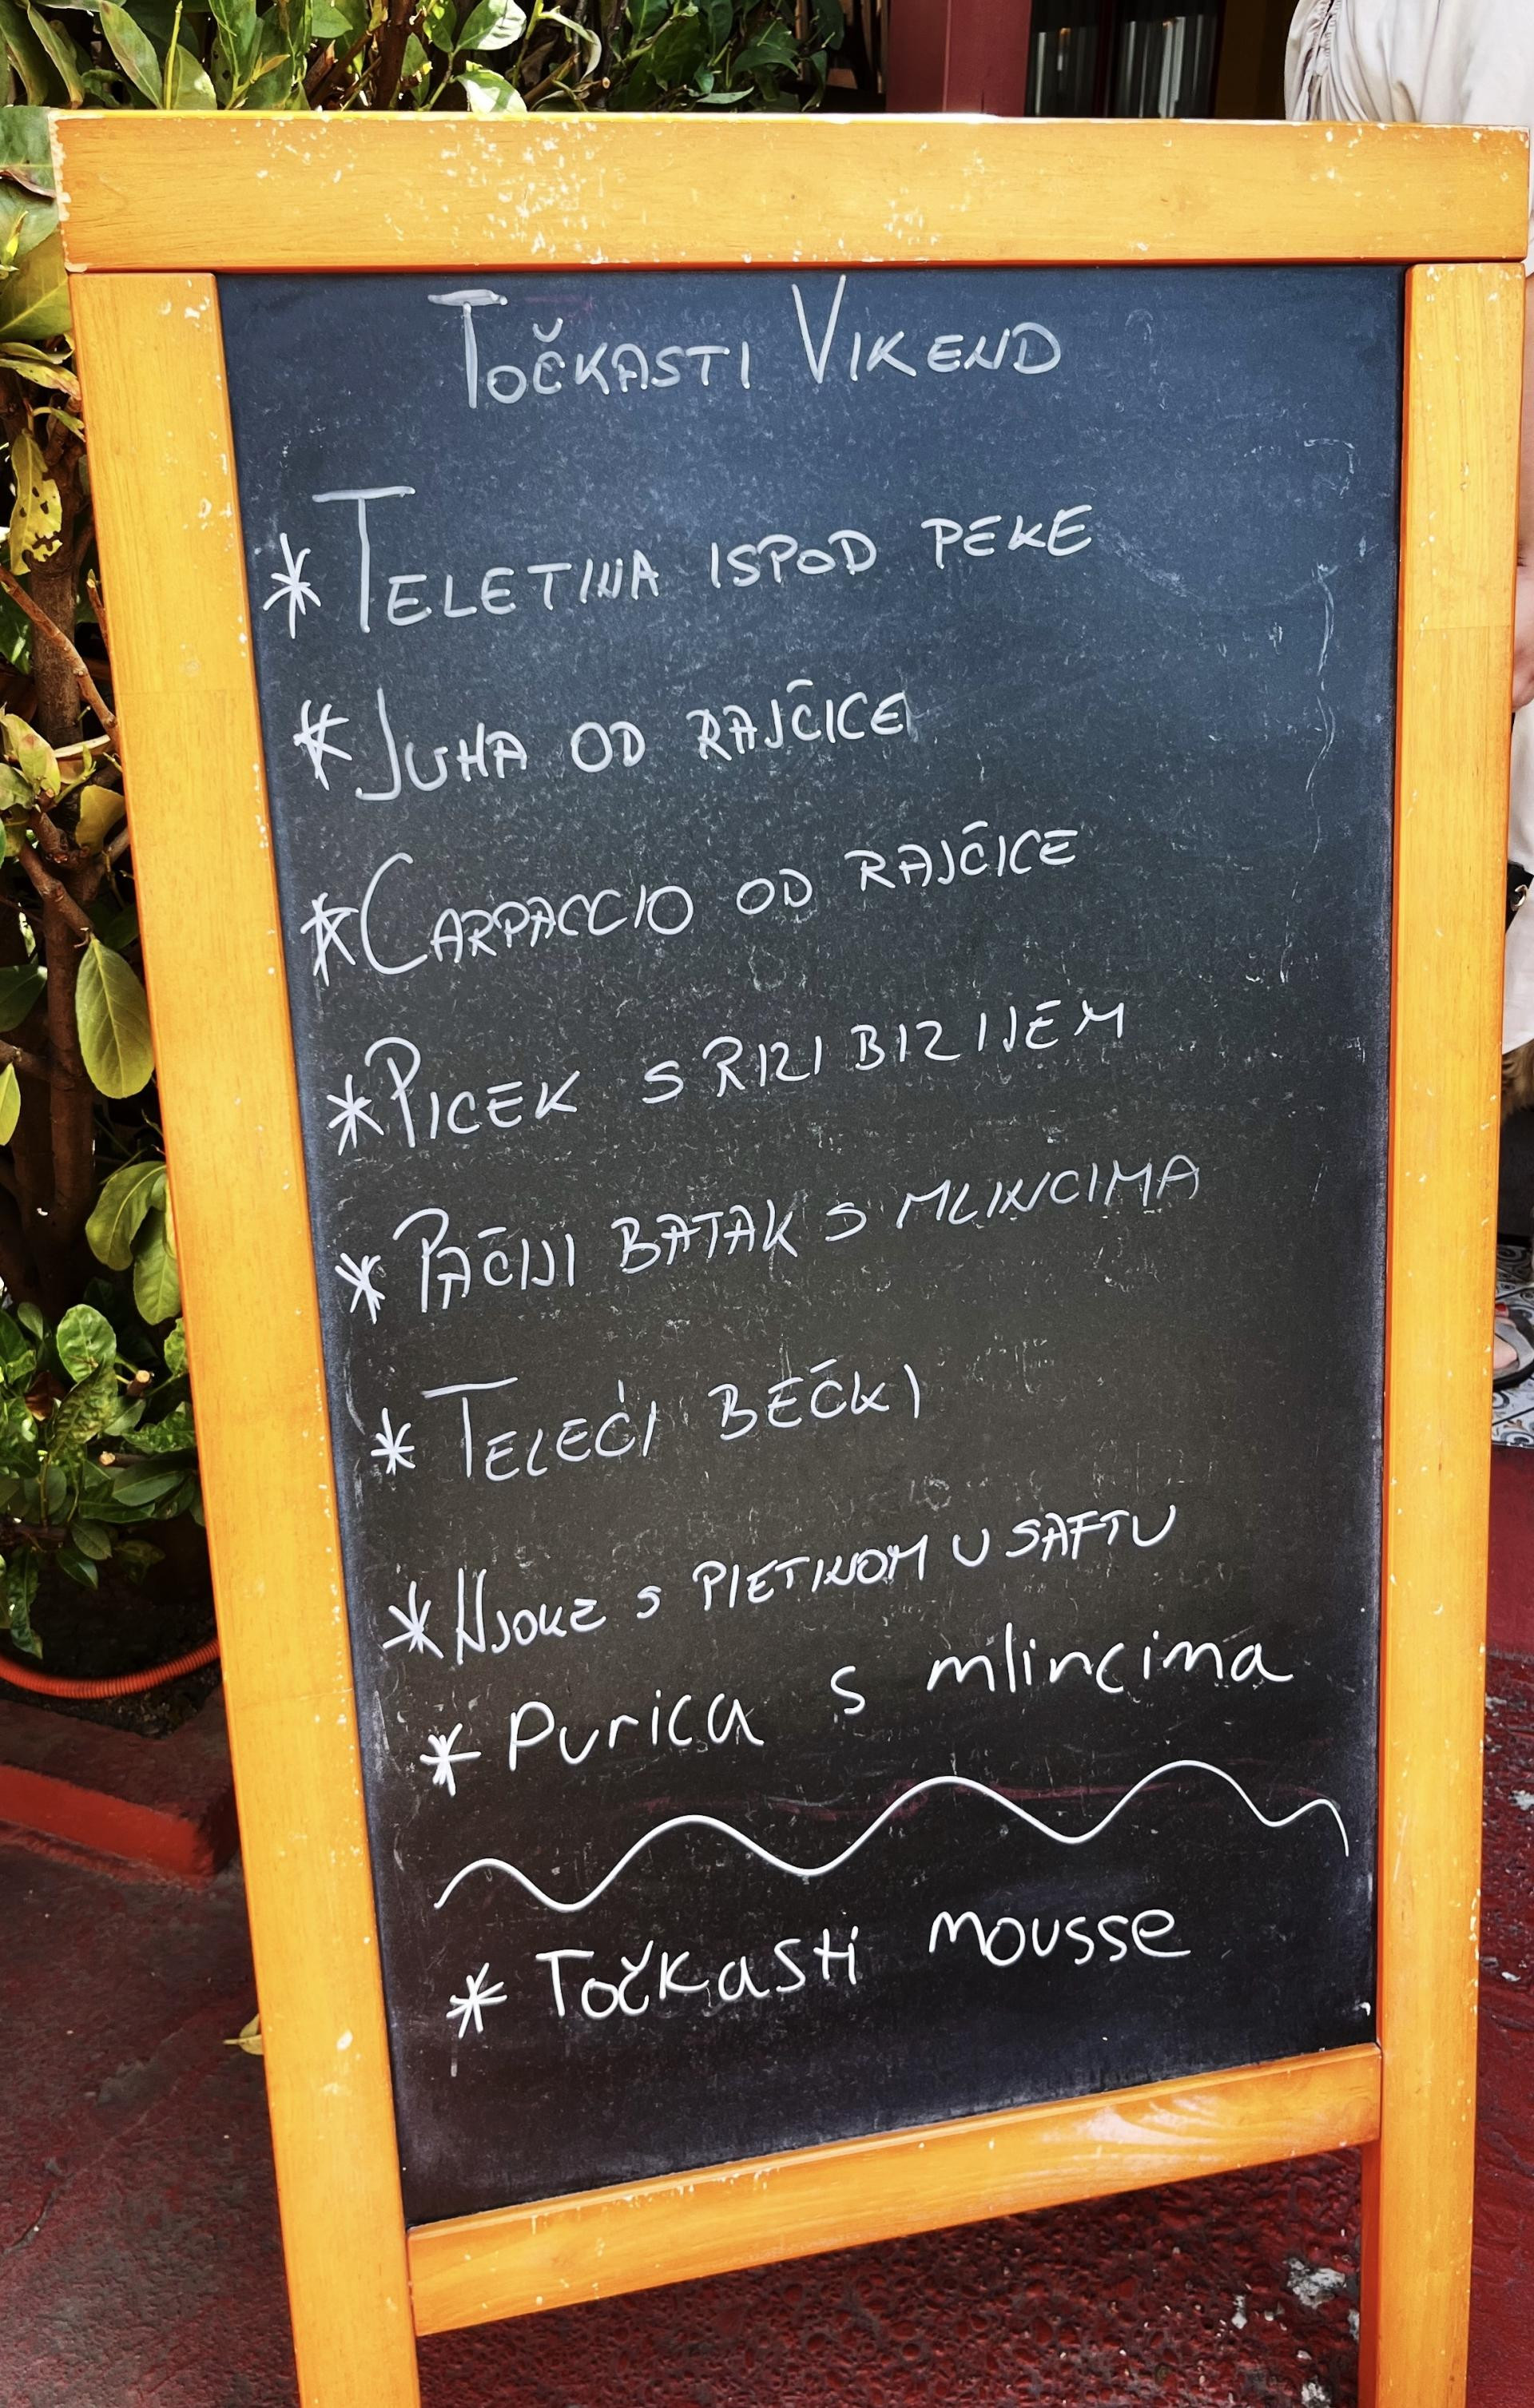 TOČKASTI VIKEND
* TELETINA ISPOD PEKE
* JUHA OD RAJČICE
* CARPACCIO OD RAJČICE
* PICEK S RIZI BIZIJEM
* PAČIJI BATAK S MLINCIMA
* TELEĆI BEČKI
* NJOKE S PIETINOM U SAFTU
* Purica s mlincima
* Točkasti mousse